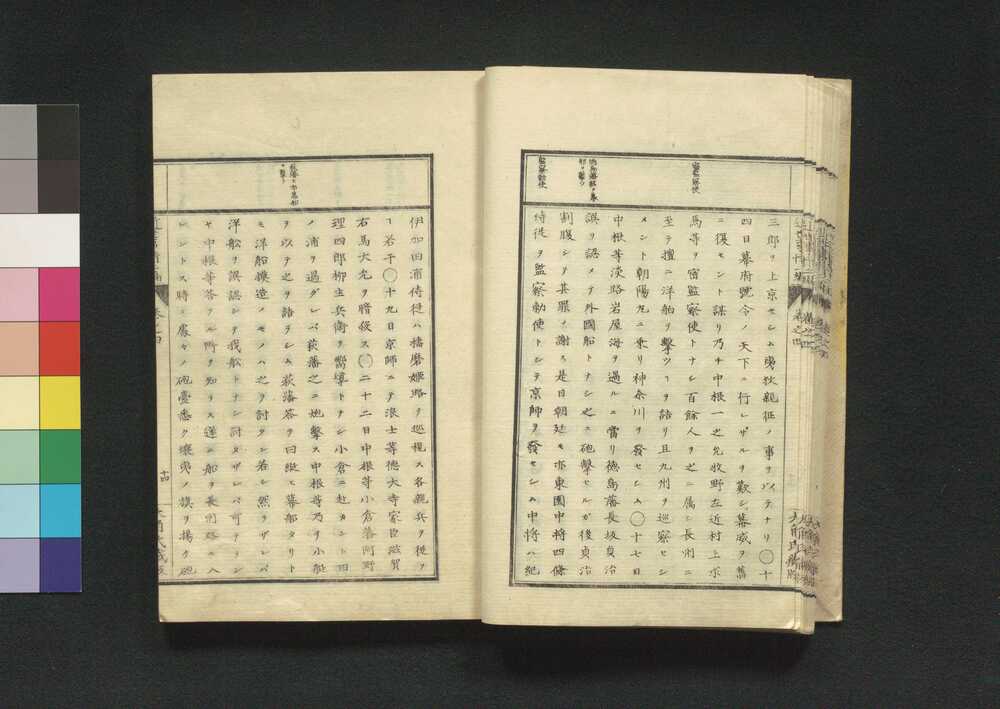 三郎ヲ上京セシム攘夷親征ノ事ヲ以テナリ〇十
四日幕府號令ノ天下ニ行レザルヲ歎シ幕威ヲ舊
ニ復セント謀リ乃チ中根一之允牧野左近村上求
馬等ヲ密監察使トナシ百餘人ヲ之ニ属シ長州ニ
至テ擅ニ洋舶ヲ擊ツヿヲ詰リ且九州ヲ巡察セシ
メント朝陽丸ニ乗リ神奈川ヲ發セシム〇十七日
中根等淡路岩屋海ヲ過ルニ當リ徳島藩長坂貞治
誤リ認メテ外國船トナシ之ニ砲擊セルガ後貞治
割腹シテ其罪ヲ謝ス是日朝廷モ亦東園中将四條
侍従ヲ監察勅使トシテ京師ヲ發セシム中将ハ紀
密監察使
徳島藩幕
船ヲ擊ツ
監察勅使
伊加田浦侍従ハ播磨姫路ヲ巡視ス各親兵ヲ従フ
ヿ若干〇十九日京師ニテ浪士等徳大寺家臣滋賀
右馬大允ヲ暗殺ス〇二十二日中根等小倉藩河野
理四郎柳生兵衛ヲ嚮導トナシ小倉ニ赴カント田
ノ浦ヲ過グレバ萩藩之ニ炮擊ス中根等乃チ小艇
ヲ以テ之ヲ詰ラシム萩藩答テ曰縦ヒ幕船タリト
モ洋船摸造ノモノハ之ヲ討タン若シ然ラザレバ
洋舩ヲ誤認シテ我舩トナシ討タザレバ可ナラン
ヤ中根等答フル所ヲ知ラス遂ニ船ヲ長州
レントス時ニ處々ノ砲臺悉ク攘夷ノ旗ヲ揚ク砲
萩藩又幕船
ヲ擊ツ
巻之四
十四